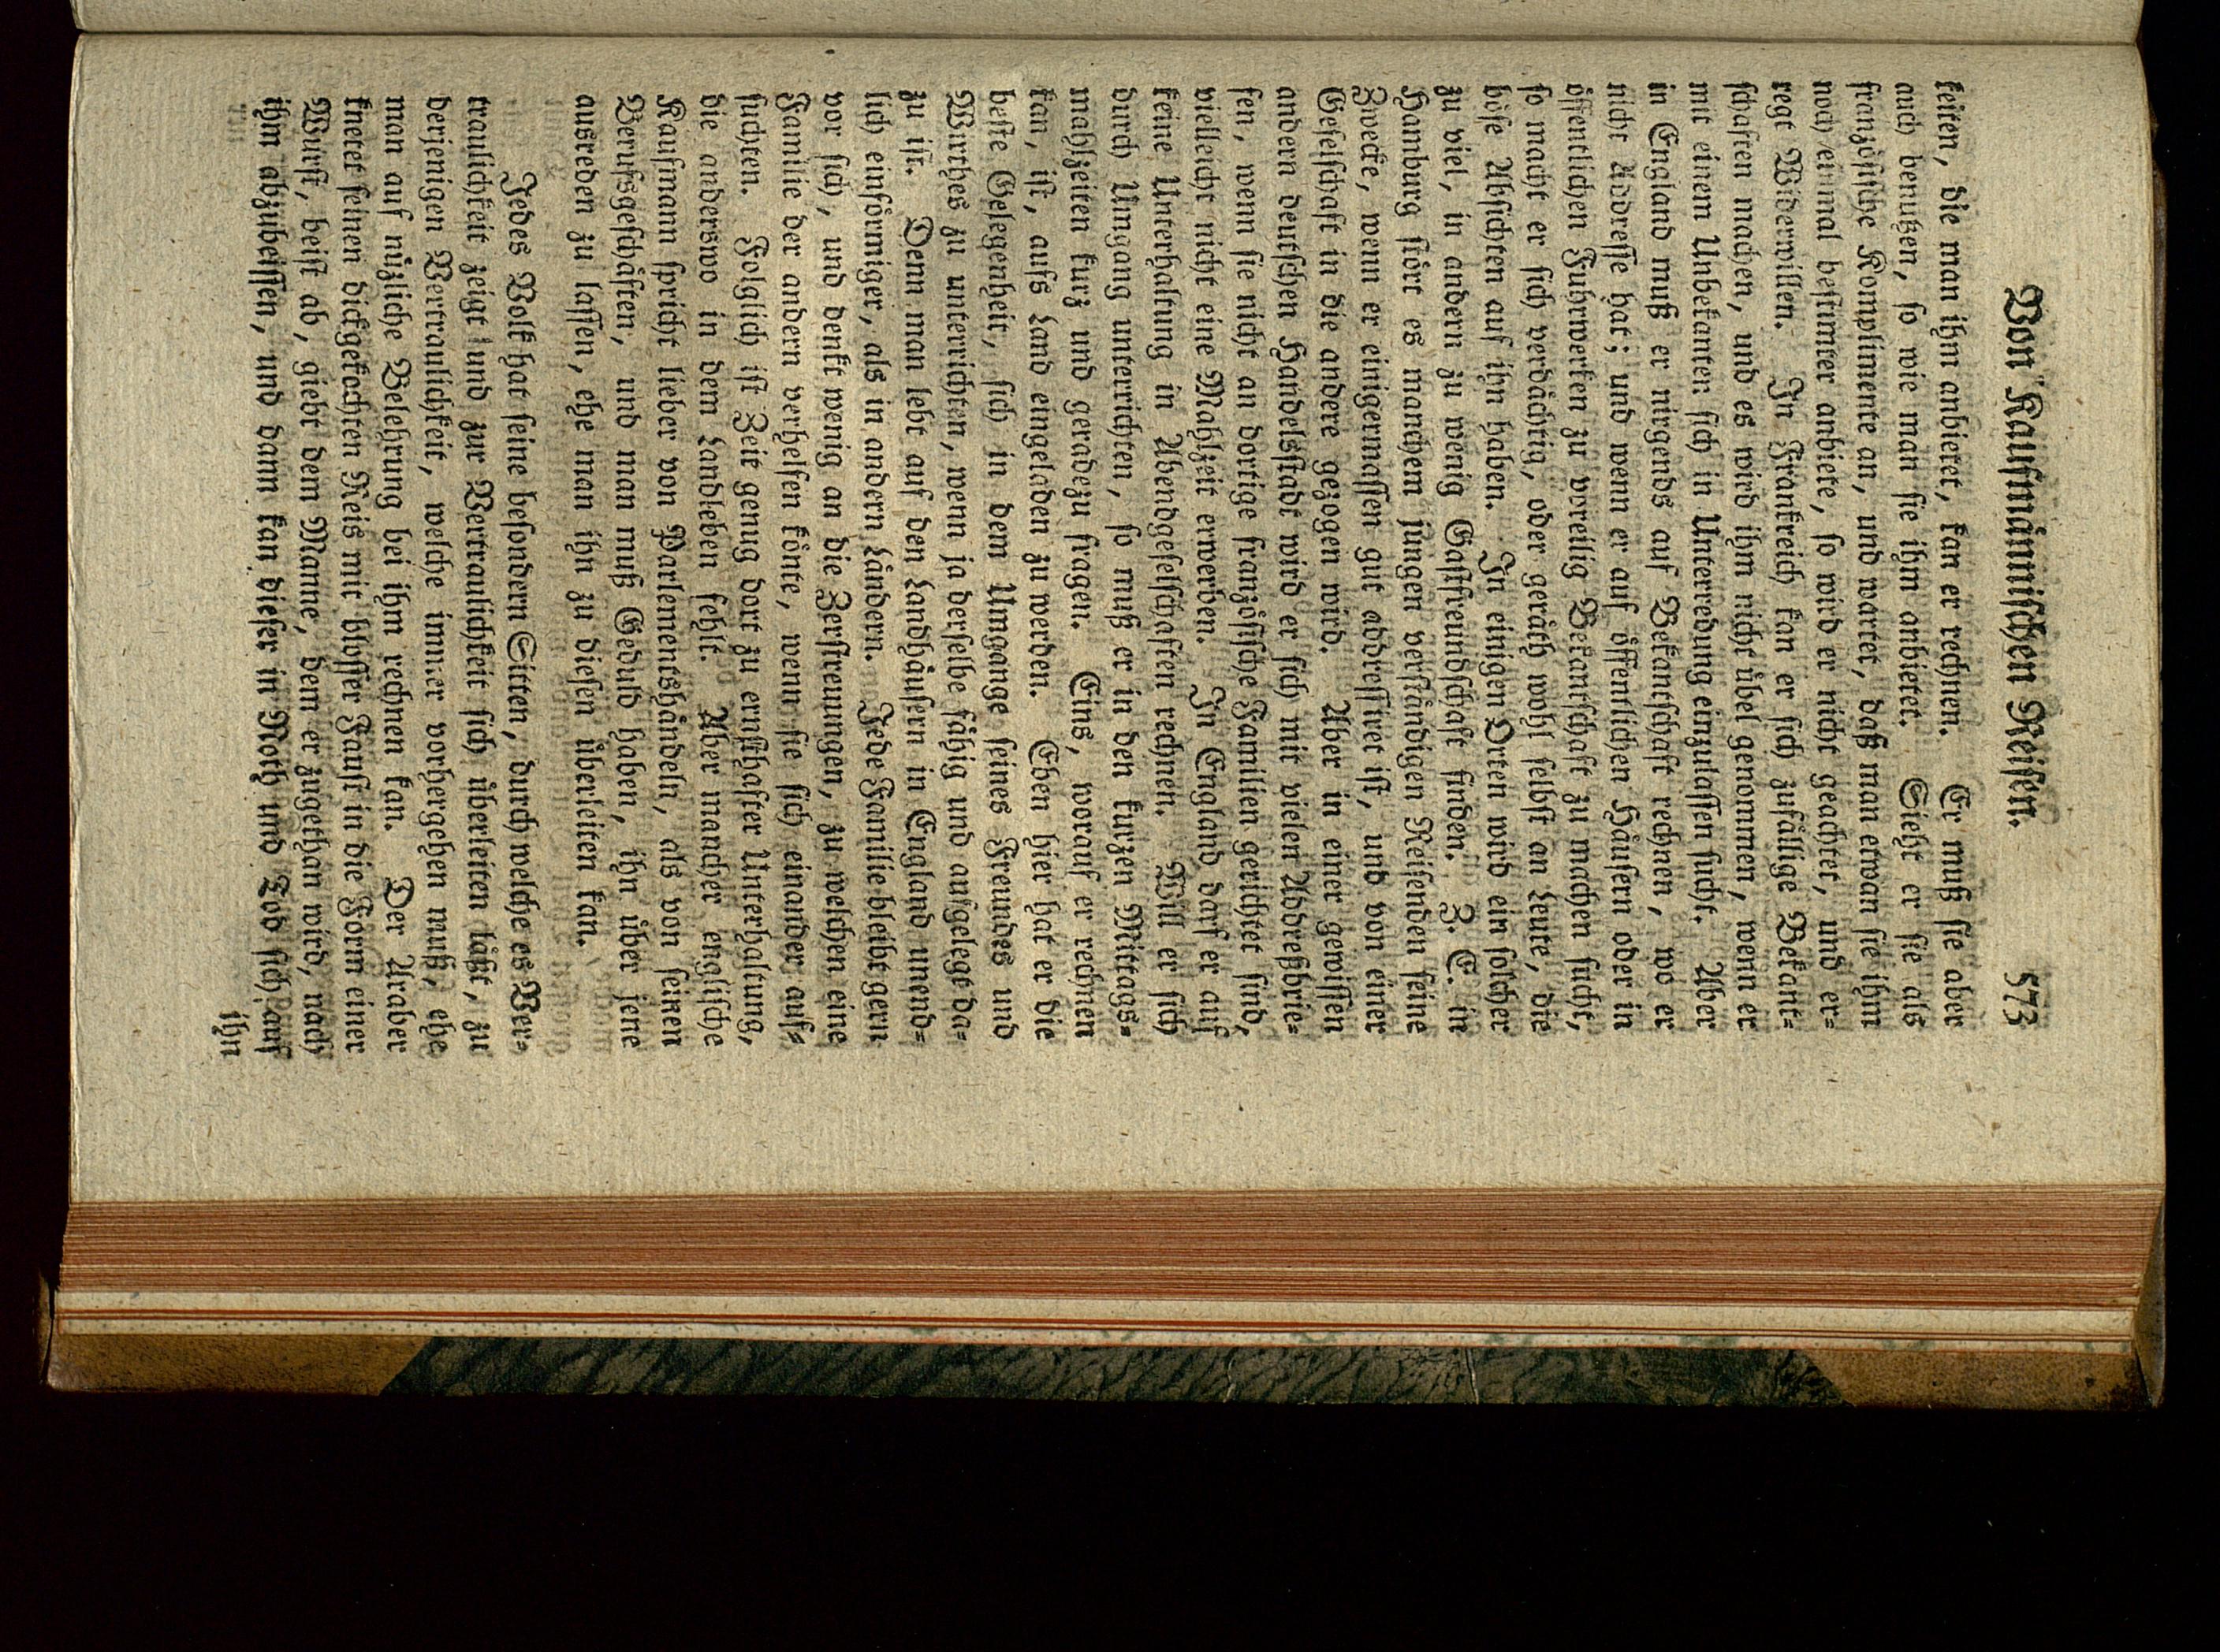 Von Kaufmännischen Reisen. 573
keiten, die man ihm anbietet, kan er rechnen. Er muß sie aber
auch benutzen, so wie man sie ihm anbietet. Sieht er sie als
französische Komplimente an, und wartet, daß man etwan sie ihm
noch einmal bestimter anbiete, so wird er nicht geachtet, und er-
regt Widerwillen. In Frankreich kan er sich zufällige Bekant-
schaften machen, und es wird ihm nicht übel genommen, wenn er
mit einem Unbekanten sich in Unterredung einzulassen sucht. Aber
in England muß er nirgends auf Bekantschaft rechnen, wo er
nicht Addresse hat; und wenn er auf öffentlichen Häusern oder in
öffentlichen Fuhrwerken zu voreilig Bekantschaft zu machen sucht,
so macht er sich verdächtig, oder geräth wohl selbst an Leute, die
böse Absichten auf ihn haben. In einigen Orten wird ein solcher
zu viel, in andern zu wenig Gastfreundschaft finden. Z. E. in
Hamburg stört es manchem jungen verständigen Reisenden seine
Zwecke, wenn er einigermassen gut addressiret ist, und von einer
Geselschaft in die andere gezogen wird. Aber in einer gewissen
andern deutschen Handelsstadt wird er sich mit vielen Addreßbrie-
fen, wenn sie nicht an dortige französische Familien gerichtet sind,
vielleicht nicht eine Mahlzeit erwerben. In England darf er auf
keine Unterhaltung in Abendgeselschaften rechnen. Will er sich
durch Umgang unterrichten, so muß er in den kurzen Mittags-
mahlzeiten kurz und geradezu fragen. Eins, worauf er rechnen
kan, ist, aufs Land eingeladen zu werden. Eben hier hat er die
beste Gelegenheit, sich in dem Umgange seines Freundes und
Wirthes zu unterrichten, wenn ja derselbe fähig und aufgelegt da-
zu ist. Denn man lebt auf den Landhäusern in England unend-
lich einförmiger, als in andern Ländern. Jede Familie bleibt gern
vor sich, und denkt wenig an die Zerstreuungen, zu welchen eine
Familie der andern verhelfen könte, wenn sie sich einander auf-
suchten. Folglich ist Zeit genug dort zu ernsthafter Unterhaltung,
die anderswo in dem Landleben fehlt. Aber mancher englische
Kaufmann spricht lieber von Parlementshändeln, als von seinen
Berufsgeschäften, und man muß Geduld haben, ihn über jene
ausreden zu lassen, ehe man ihn zu diesen überleiten kan.
Jedes Volk hat seine besondern Sitten, durch welche es Ver-
traulichkeit zeigt und zur Vertraulichkeit sich überleiten läßt, zu
derjenigen Vertraulichkeit, welche immer vorhergehen muß, ehe
man auf nüzliche Belehrung bei ihm rechnen kan. Der Araber
knetet seinen dickgekochten Reis mit blosser Faust in die Form einer
Wurst, beist ab, giebt dem Manne, dem er zugethan wird, nach
ihm abzubeissen, und dann kan dieser in Noth und Tod sich auf
ihn